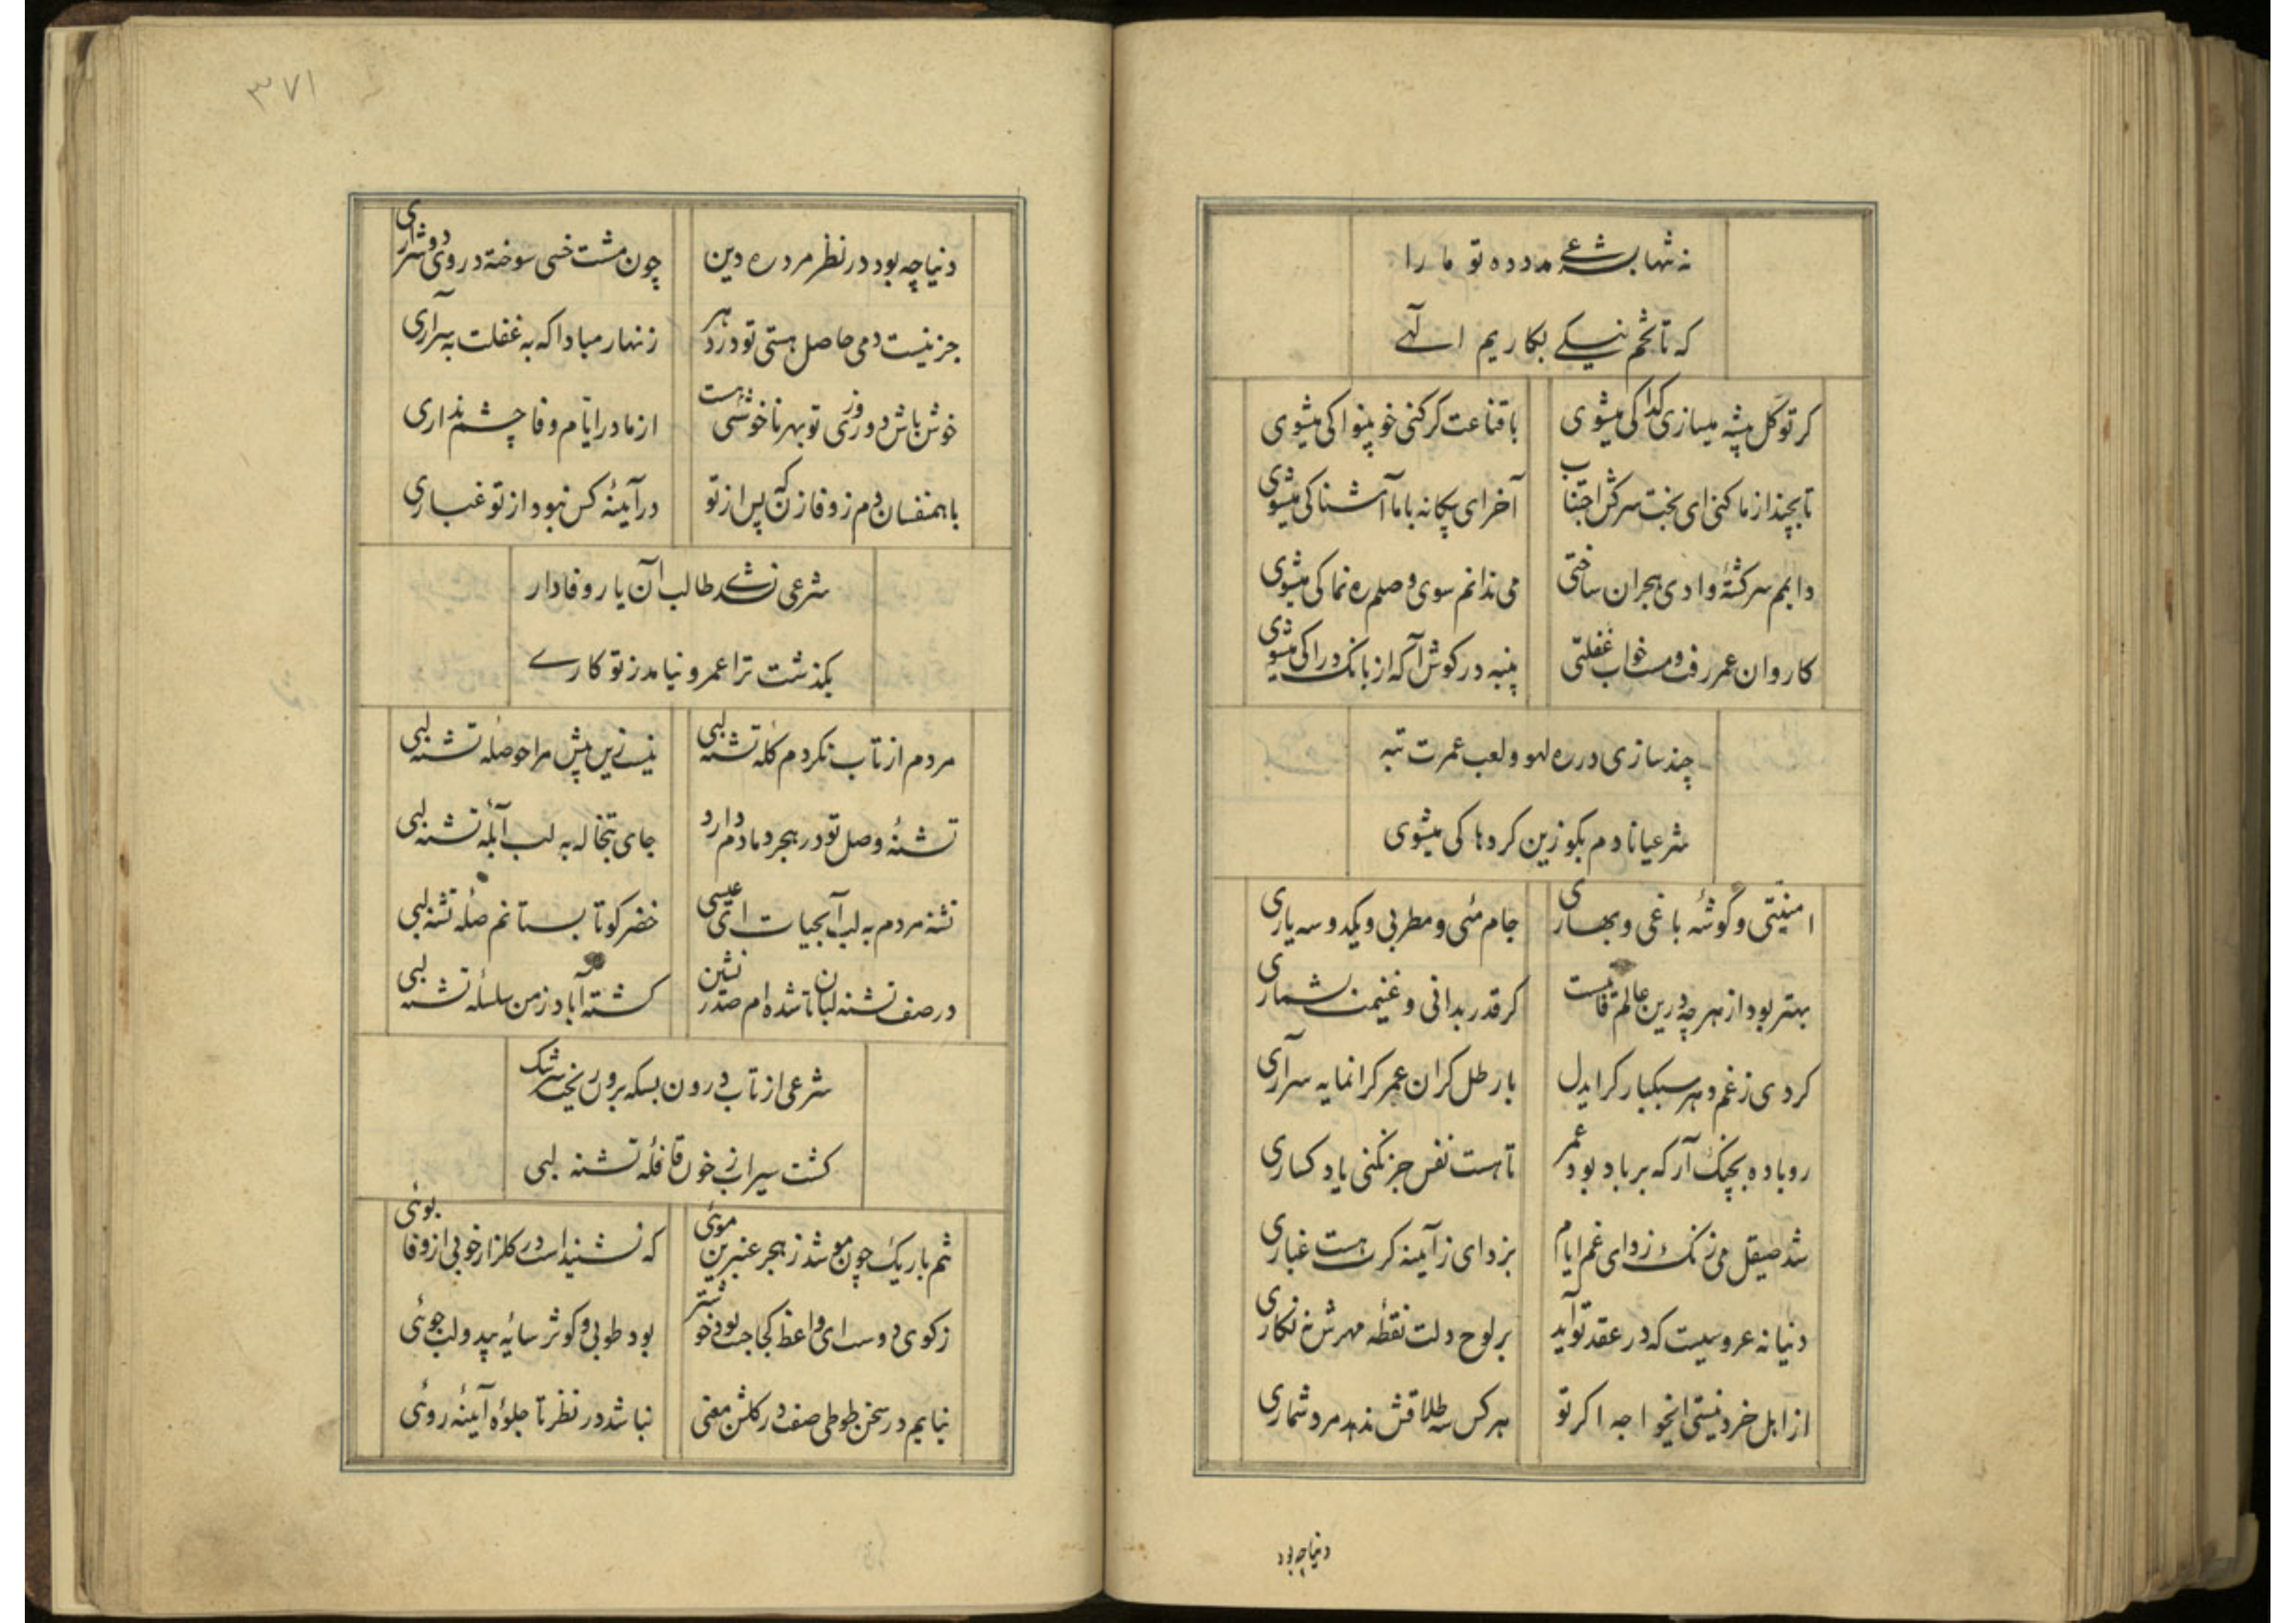 نه تنها بشرعی مدد ده تو ما را
که تا تخم نیکی بکاریم الهی
کر توکل پیشه میسازی کدا کی میشوی
با قناعت کر کنی خو بینوا کی میشوی
تا بچند از ما کنی ای بخت سرکش اجتناب
آخر ای بیکانه با ما آشنا کی میشوی
دایمم سرکشتهٔ وادی هجران ساختی
می ندانم سوی وصلم ره نما کی میشوی
کاروان عمر رفت و مست خواب غفلتی
پنبه در کوش آکه از بانک درا کی میشوی
چند سازی در ره لهو و لعب عمرت تبه
شرعیا نادم بکو زین کردها کی میشوی
امنیتی و گوشهٔ باغی و بهاری
جام مئی و مطربی و یکدو سه یاری
بهتر بود از هر چه درین عالم فانیست
کر قدر بدانی و غنیمت بشماری
کردی ز غم دهر سبکبار کر ایدل
با رطل کران عمر کرانمایه سرآری
رو باده بچنک آر که بر باد بود عمر
تا هست نفس جز نکنی یاد کساری
شد صیقل می زنک زدای غم ایام
بزدای ز آیینه کرت هست غباری
دنیا نه عروسیست که در عقد تو آید
بر لوح دلت نقطهٔ مهرش نه نکاری
از اهل خرد نیستی ایخواجه اکر تو
هر کس سه طلاقش ندهد مرد شماری
دنیا چه بود
۳۷۱
دنیا چه بود در نظر مرد ره دین
چون مشت خسی سوخته در روی شراری
جز نیست دمی حاصل هستی تو در دهر
زنهار مبادا که به غفلت بسرآری
خوش باش دو روزی تو بهر ناخوشی هست
از مادر ایام وفا چشم نداری
با همنفسان دم ز وفا زن که پس از تو
در آیینهٔ کس نبود از تو غباری
شرعی نشدی طالب آن یار وفادار
بکذشت ترا عمر و نیامد ز تو کاری
مردم از تاب نکردم کلهٔ تشنه لبی
نیست زین بیش مرا حوصلهٔ تشنه لبی
تشنهٔ وصل تو در هجر دمادم دارد
جای تبخاله به لب آبلهٔ تشنه لبی
تشنه مردم به لب آبحیات ای عیسی
خضر کو تا بستانم صلهٔ تشنه لبی
در صف تشنه لبان تا شده ام صدر نشین
کشته آباد ز من سلسلهٔ تشنه لبی
شرعی از تاب درون بسکه برون ریخت سرشک
کشت سیراب ز خون قافلهٔ تشنه لبی
تنم باریک چون مو شد ز هجر عنبرین موئی
که نشنیداست در کلزار خوبی از وفا بوئی
ز کوی دوست ای واعظ کجا جنت بود خوشتر
بود طوبی و کوثر سایهٔ بید و لب جوئی
نیایم در سخن طوطی صفت در کلشن معنی
نباشد در نظر تا جلوهٔ آیینه روئی